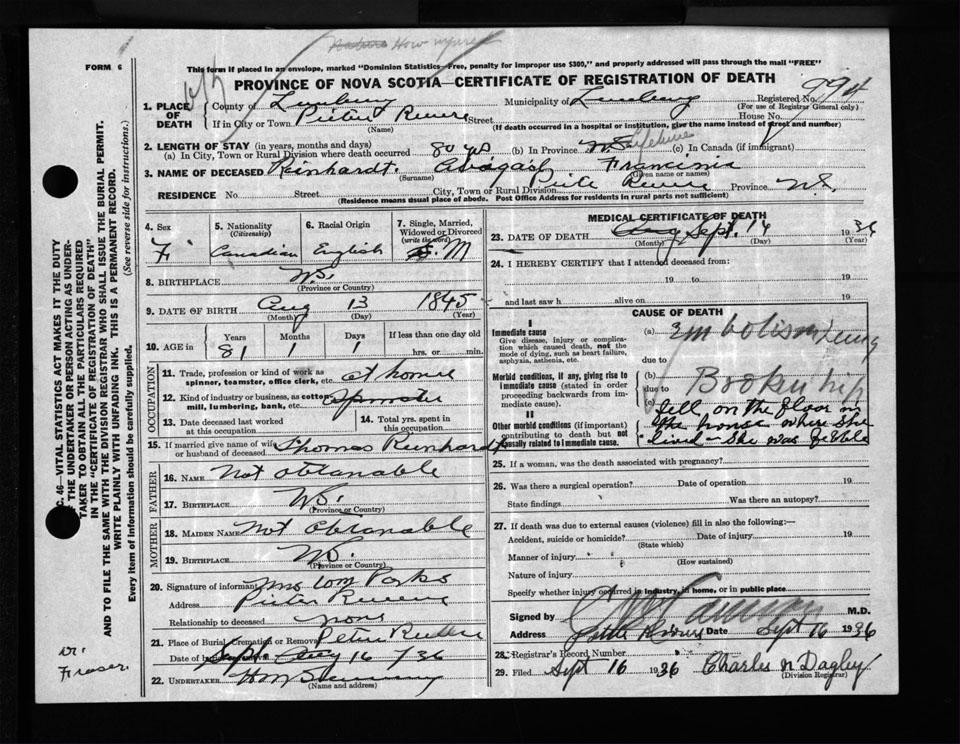 How injured
FORM 6
This form if placed in an envelope, marked "Dominion Statistics—Free, penalty for improper use $300," and properly addressed will pass through the mail "FREE"
PROVINCE OF NOVA SCOTIA—CERTIFICATE OF REGISTRATION OF DEATH
994
1. PLACE OF DEATH County of Lunburg Municipality of Lunburg Registered No.
(For use of Registrar General only)
If in City or Town Street House No.
(Name) (If death occurred in a hospital or institution, give the name instead of street and number)
2. LENGTH OF STAY (in years, months and days)
(a) In City, Town or Rural Division where death occurred 80 yrs (b) In Province N.S. Lifetime (c) In Canada (if immigrant)
3. NAME OF DECEASED Reinhardt. Abigail Francinia
(Surname) (Given name or names)
RESIDENCE No. Street City, Town or Rural Division Province N.S.
(Residence means usual place of abode. Post Office Address for residents in rural parts not sufficient)
C. 46—VITAL STATISTICS ACT MAKES IT THE DUTY
OF THE UNDERTAKER OR PERSON ACTING AS UNDER-
TAKER TO OBTAIN ALL THE PARTICULARS REQUIRED
IN THE "CERTIFICATE OF REGISTRATION OF DEATH"
AND TO FILE THE SAME WITH THE DIVISION REGISTRAR WHO SHALL ISSUE THE BURIAL PERMIT.
WRITE PLAINLY WITH UNFADING INK. THIS IS A PERMANENT RECORD.
Every item of information should be carefully supplied. (See reverse side for instructions.)
4. Sex F.
5. Nationality (Citizenship) Canadian
6. Racial Origin English
7. Single, Married, Widowed or Divorced (write the word) M
8. BIRTHPLACE N.S.
(Province or Country)
9. DATE OF BIRTH Aug 13 1845
(Month) (Day) (Year)
10. AGE in Years 81 Months 1 Days 1 If less than one day old
hrs. or min.
OCCUPATION
11. Trade, profession or kind of work as spinner, teamster, office clerk, etc. at home
12. Kind of industry or business, as cotton mill, lumbering, bank, etc. Spinster
13. Date deceased last worked at this occupation
14. Total yrs. spent in this occupation
15. If married give name of wife or husband of deceased Thomas Reinhardt
FATHER
16. NAME Not Obtanable
17. BIRTHPLACE N.S.
(Province or Country)
MOTHER
18. MAIDEN NAME Not Obtanable
19. BIRTHPLACE N.S.
(Province or Country)
20. Signature of informant Mrs Wm Parks
Address
Relationship to deceased none
21. Place of Burial, Cremation or Removal
Date of Sept Aug 16 /36
22. UNDERTAKER
(Name and address)
Fraser
MEDICAL CERTIFICATE OF DEATH
23. DATE OF DEATH Aug Sept. 14 1936
(Month) (Day) (Year)
24. I HEREBY CERTIFY that I attended deceased from:
19 to 19
and last saw h alive on 19
CAUSE OF DEATH
I
Immediate cause
Give disease, injury or complication which caused death, not the mode of dying, such as heart failure, asphyxia, asthenia, etc.
(a) Embolism Lung
due to
Morbid conditions, if any, giving rise to immediate cause (stated in order proceeding backwards from immediate cause).
(b) Broken hip
due to
(c) fell on the floor in
II
Other morbid conditions (if important) contributing to death but not causally related to immediate cause.
the house where she
lived - she was feeble
25. If a woman, was the death associated with pregnancy?
26. Was there a surgical operation? Date of operation 19
State findings Was there an autopsy?
27. If death was due to external causes (violence) fill in also the following:—
Accident, suicide or homicide? Date of injury 19
(State which)
Manner of injury
(How sustained)
Nature of injury
Specify whether injury occurred in industry, in home, or in public place
Signed by M.D.
Address Date Sept 16 1936
28. Registrar's Record Number
29. Filed Sept 16 1936 Charles N Dagley
(Division Registrar)